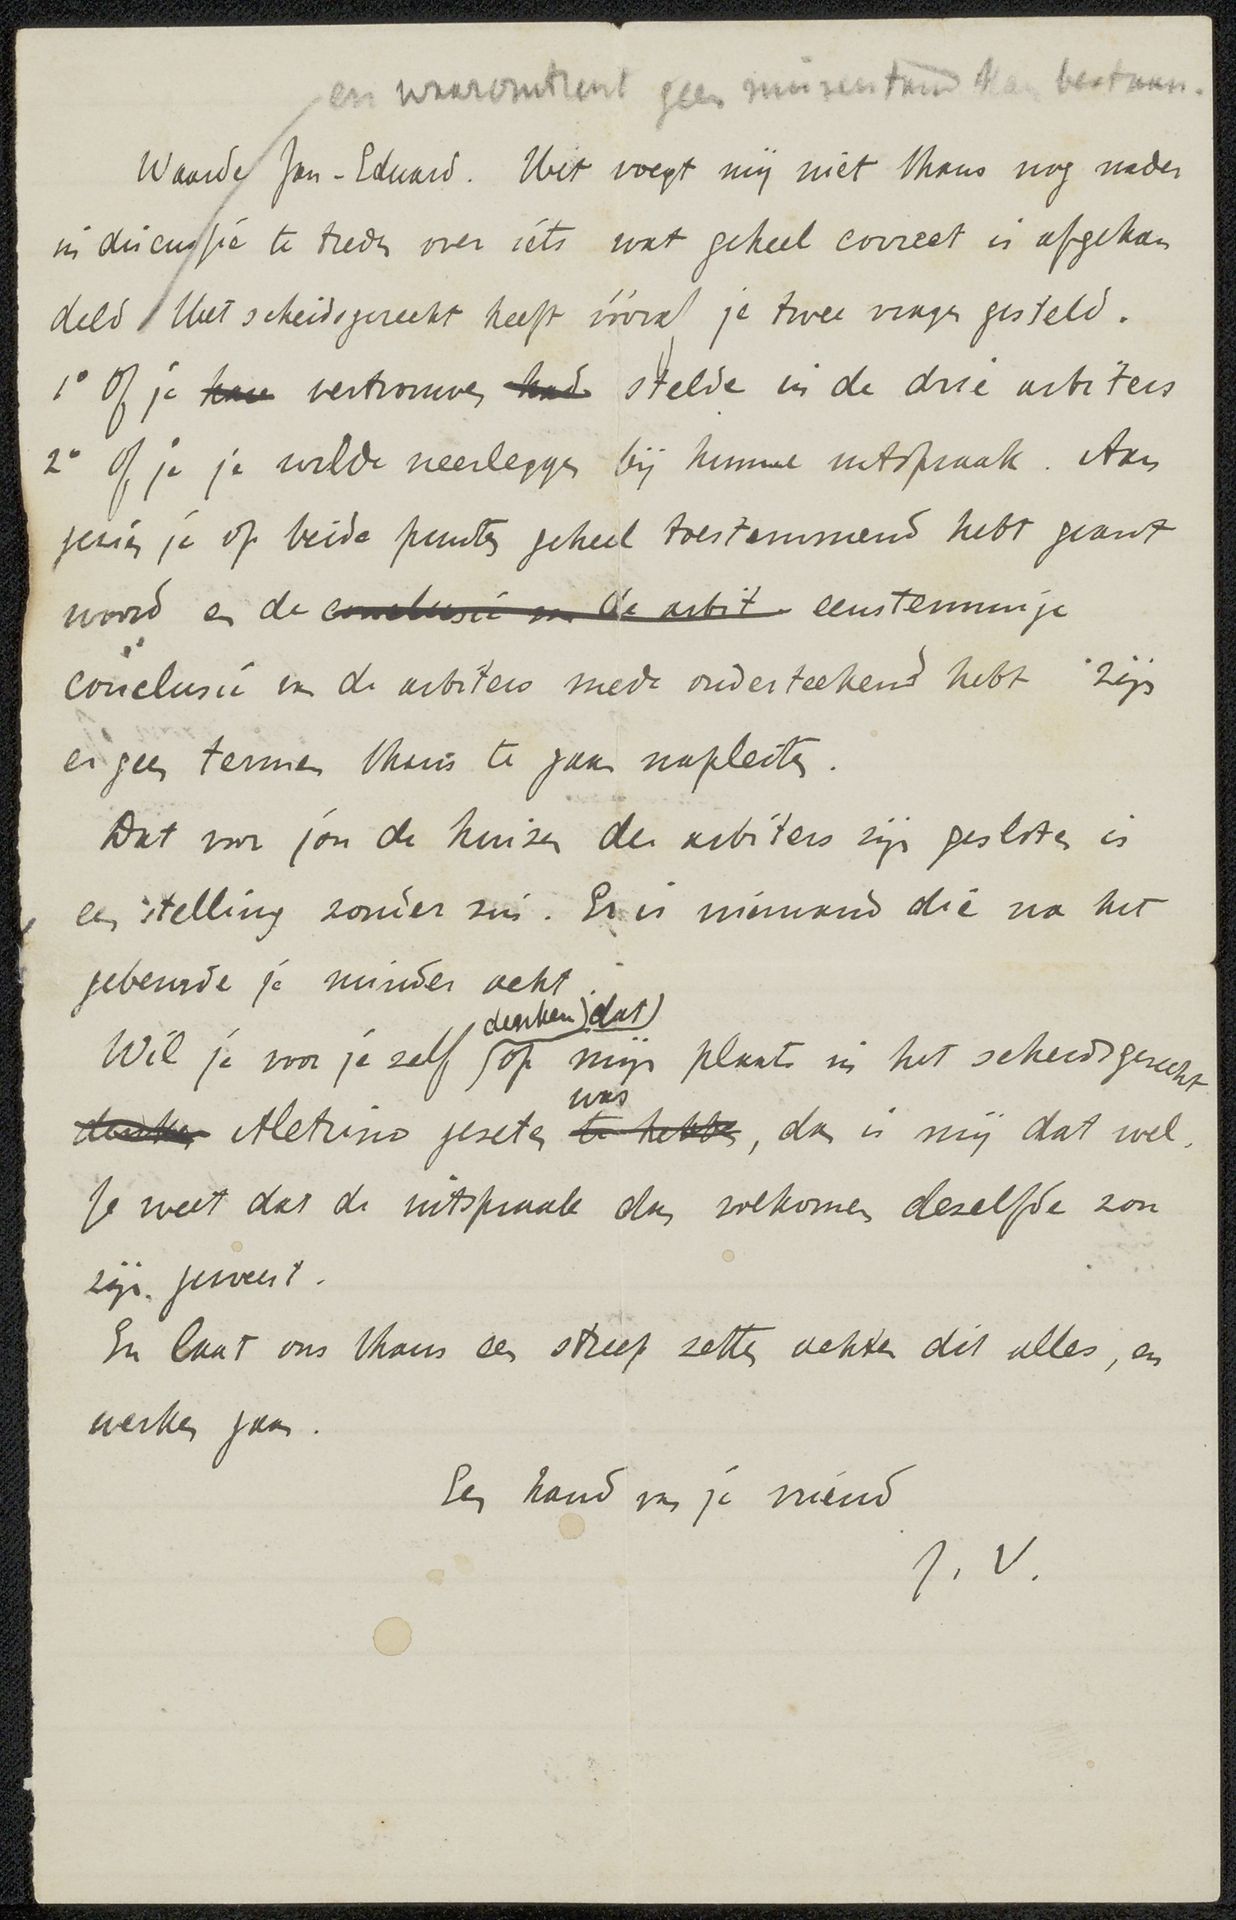 en waaromtrent geen misverstand kan bestaan.
Waarde Jan-Eduard. Het voegt mij niet thans nog nader
in discussie te treden over iets wat geheel correct is afgehan
deld Het scheidsgerecht heeft vooraf je twee vragen gesteld.
1° Of je vertrouwen stelde in de drie arbiters
2° Of je je wilde neerleggen bij hunne uitspraak. Aan
gezien je op beide punten geheel toestemmend hebt geant
woord en de conclusie van de arbit eenstemmige
conclusie van de arbiters mede onderteekend hebt zijn
er geen termen thans te gaan napleiten.
Dat voor jou de huizen der arbiters zijn gesloten is
een stelling zonder zin. Er is niemand die na het
gebeurde je minder acht.
denken) dat)
Wil je voor je zelf (op mijn plaats in het scheidsgerecht
was
denken Aletrino gezeten te hebben, dan is mij dat wel.
Je weet dat de uitspraak dan volkomen dezelfde zou
zijn geweest.
En laat ons thans een streep zetten achter dit alles, en
werken gaan.
Een hand van je vriend
J. V.